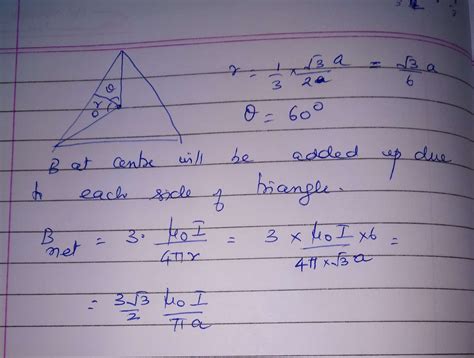 θ
r
θ
r = 1/3 × √3 a/2a = √3/6 a
θ = 60°
B at centre will be added up due
to each side of triangle.
B net = 3. μ₀I/4πr = 3 × μ₀I × 6/4π × √3 a =
= 3√3/2 μ₀I/πa